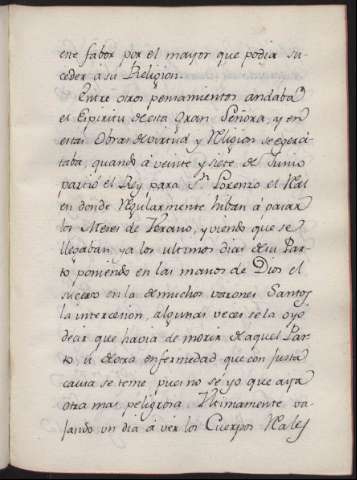 ese fabor por el mayor que podia su-
ceder a su Religion.
Entre otros pensamientos andaba
el Espiritu de esta Gran Señora, y en
estas Obras de virtud y Religion se egerci-
taba, quando á veinte y siete de Junio
partió el Rey para Sn. Lorenzo el Real
en donde regularmente hiban á pasar
los Meses de Verano, y viendo que se
llegaban ya los ultimos dias de su Par-
to poniendo en las manos de Dios el
suceso en la de muchos varones Santos
la intercesion, algunas veces se la oyó
decir que havia de morir de aquel Par-
to, ú de otra enfermedad que con justa
causa se teme pues no se yo que aya
otra mas peligrosa. Ultimamente va-
jando un dia á ver los Cuerpos Reales